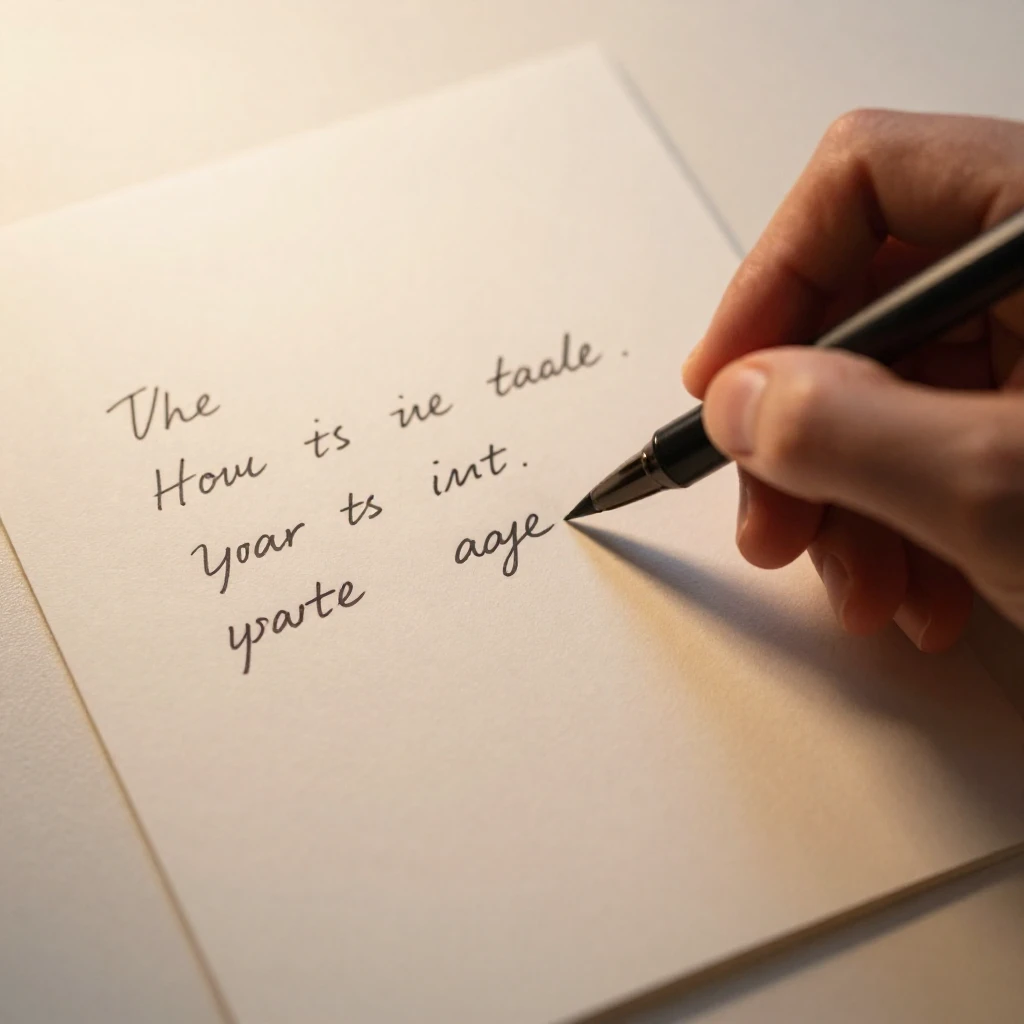 The
How is ine taale.
yoar ts int.
yparte aaye